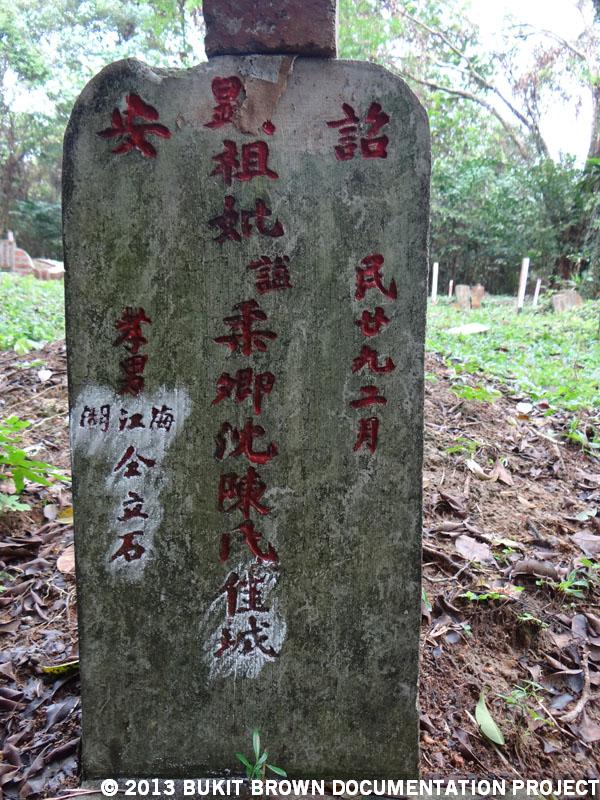 詔安
民廿九二月
顯祖妣謚柔卿沈陳氏佳城
孝男海江湖仝立石
© 2013 BUKIT BROWN DOCUMENTATION PROJECT